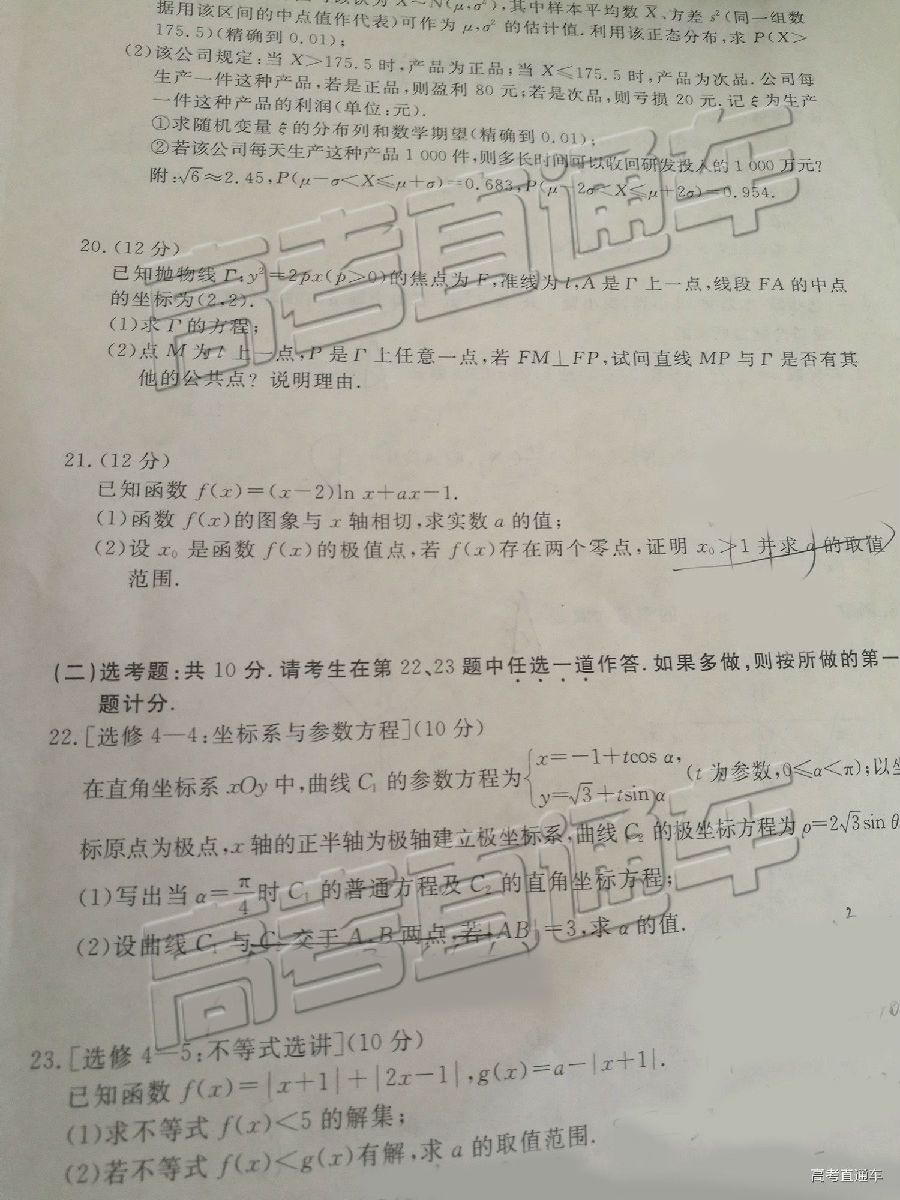 N(μ,σ²),其中样本平均数 X、方差 s²(同一组数
据用该区间的中点值作代表)可作为 μ,σ² 的估计值.利用该正态分布,求 P(X>
175.5)(精确到 0.01);
(2)该公司规定:当 X>175.5 时,产品为正品;当 X≤175.5 时,产品为次品.公司每
生产一件这种产品,若是正品,则盈利 80 元;若是次品,则亏损 20 元.记 ξ 为生产
一件这种产品的利润(单位:元).
①求随机变量 ξ 的分布列和数学期望(精确到 0.01);
②若该公司每天生产这种产品 1 000 件,则多长时间可以收回研发投入的 1 000 万元?
附:√6≈2.45,P(μ-σ<X≤μ+σ)=0.683,P(μ-2σ<X≤μ+2σ)=0.954.
20.(12 分)
已知抛物线 Γ:y²=2px(p>0)的焦点为 F,准线为 l,A 是 Γ 上一点,线段 FA 的中点
的坐标为(2,2).
(1)求 Γ 的方程;
(2)点 M 为 l 上一点,P 是 Γ 上任意一点,若 FM⊥FP,试问直线 MP 与 Γ 是否有其
他的公共点? 说明理由.
21.(12 分)
已知函数 f(x)=(x-2)ln x+ax-1.
(1)函数 f(x)的图象与 x 轴相切,求实数 a 的值;
(2)设 x₀ 是函数 f(x)的极值点,若 f(x)存在两个零点,证明 x₀>1 并求 a 的取值
范围.
(二)选考题:共 10 分.请考生在第 22、23 题中任选一道作答.如果多做,则按所做的第一
题计分.
22.[选修 4—4:坐标系与参数方程](10 分)
在直角坐标系 xOy 中,曲线 C₁ 的参数方程为{x=-1+tcos α, y=√3+tsin α (t 为参数,0≤α<π);以坐
标原点为极点,x 轴的正半轴为极轴建立极坐标系,曲线 C₂ 的极坐标方程为 ρ=2√3sin θ
(1)写出当 α=π/4 时 C₁ 的普通方程及 C₂ 的直角坐标方程;
(2)设曲线 C₁ 与 C₂ 交于 A,B 两点,若|AB|=3,求 α 的值.
2
23.[选修 4—5:不等式选讲](10 分)
已知函数 f(x)=|x+1|+|2x-1|,g(x)=a-|x+1|.
(1)求不等式 f(x)<5 的解集;
(2)若不等式 f(x)<g(x)有解,求 a 的取值范围.
高考直通车
高考直通车
高考直通车